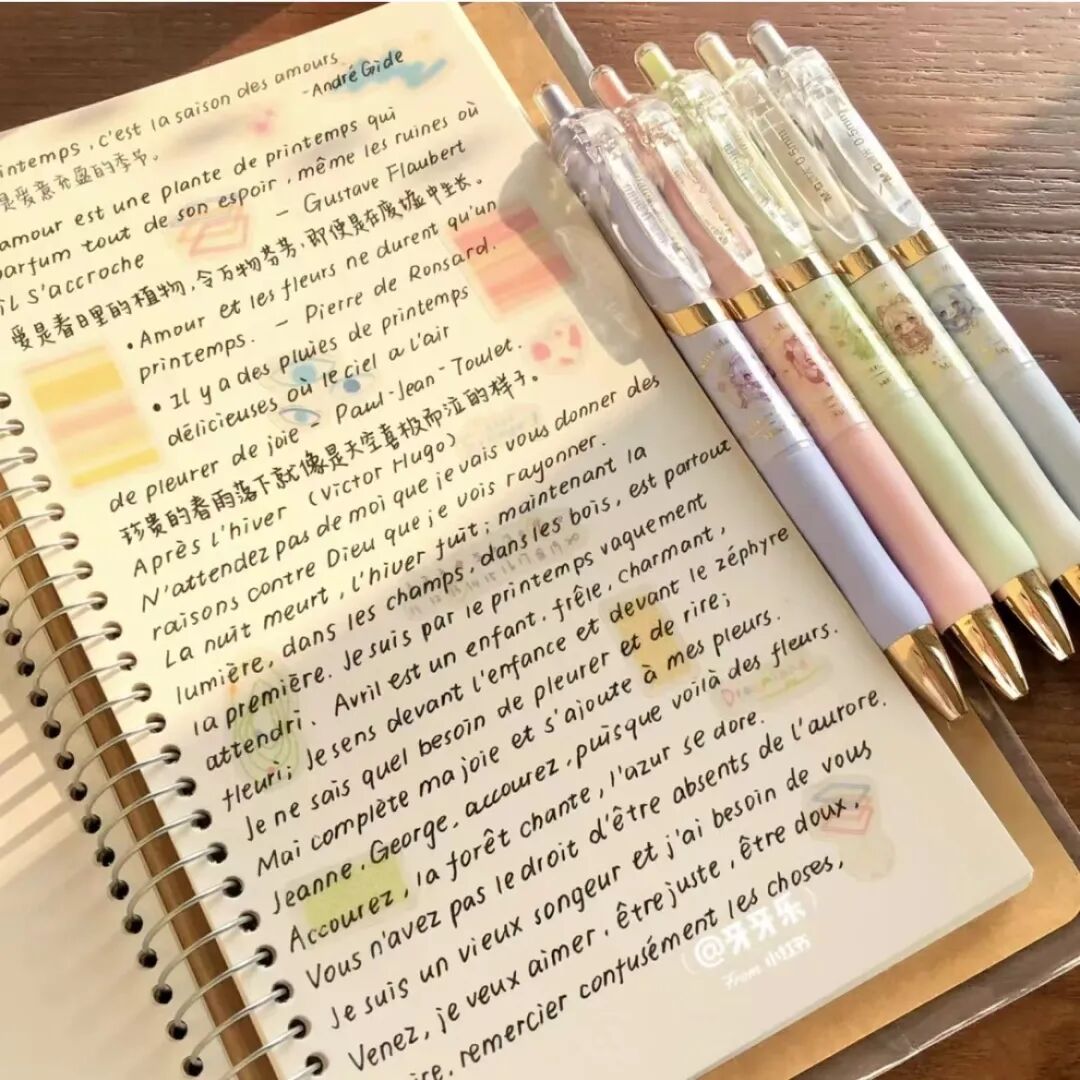 intemps, c'est la saison des amours
-André Gide
是爱意充盈的季节。
amour est une plante de printemps qui
parfum tout de son espoir, même les ruines où
il s'accroche - Gustave Flaubert
爱是春日里的植物,令万物芬芳,即使是在废墟中生长。
• Amour et les fleurs ne durent qu'un
printemps. - Pierre de Ronsard.
• Il y a des pluies de printemps
délicieuses où le ciel a l'air
de pleurer de joie - Paul-Jean-Toulet.
珍贵的春雨落下就像是天空喜极而泣的样子。
Après l'hiver (Victor Hugo)
N'attendez pas de moi que je vais vous donner des
raisons contre Dieu que je vois rayonner.
La nuit meurt, l'hiver fuit; maintenant la
lumière, dans les champs, dans les bois, est partout
la première. Je suis par le printemps vaguement
attendri. Avril est un enfant, frêle, charmant,
fleuri; Je sens devant l'enfance et devant le zéphyre
Je ne sais quel besoin de pleurer et de rire;
Mai complète ma joie et s'ajoute à mes pleurs.
Jeanne, George, accourez, puisque voilà des fleurs.
Accourez, la forêt chante, l'azur se dore.
Vous n'avez pas le droit d'être absents de l'aurore.
Je suis un vieux songeur et j'ai besoin de vous
Venez, je veux aimer, être juste, être doux,
ire, remercier confusément les choses,
@牙牙乐
From 小红书
M&G 0.5mm
M&G 0.5mm